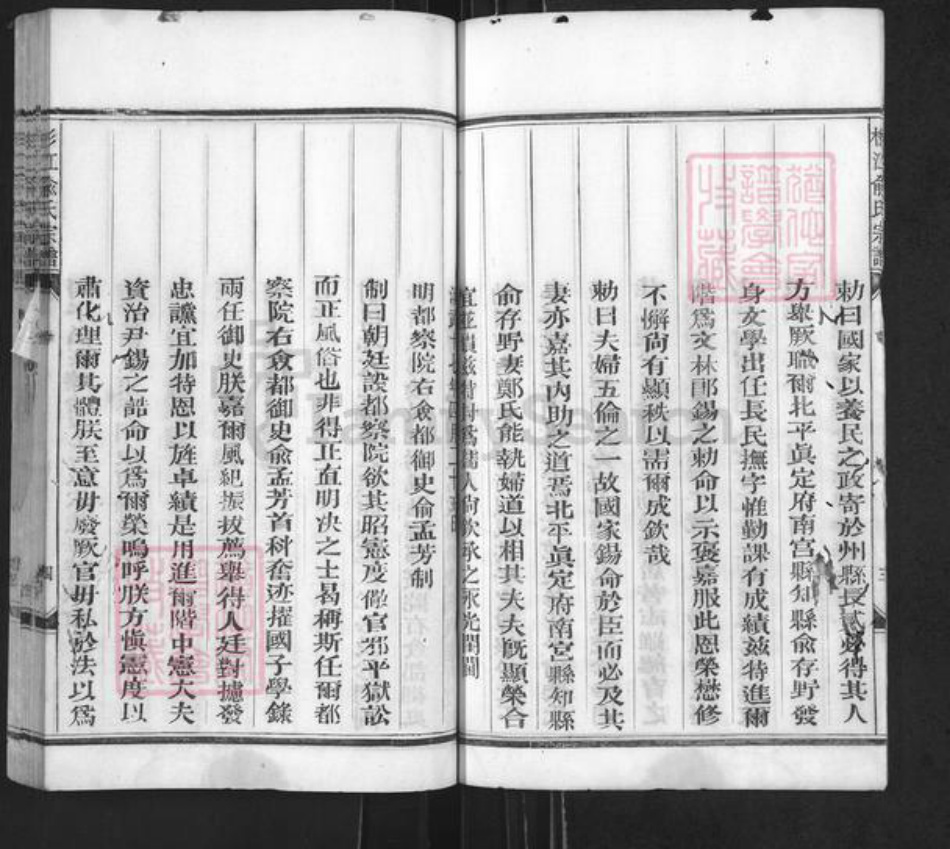 勅曰國家以養民之政寄於州縣長貳必得其人
方舉厥職爾北平眞定府南宮縣知縣俞存野發
身文學出任長民撫字惟勤課有成績茲特進爾
階爲文林郎錫之勅命以示褒嘉服此恩榮懋修
不懈尚有顯秩以需爾成欽哉
勅曰夫婦五倫之一故國家錫命於臣而必及其
妻亦嘉其內助之道焉北平眞定府南宮縣知縣
俞存野妻鄭氏能執婦道以相其夫夫既顯榮合
宜並 茲特封爲孺人尚欽承之永光閨閫
明都察院右僉都御史俞孟芳制
制曰朝廷設都察院欲其昭憲度儆官邪平獄訟
而正風俗也非得正直明決之士曷稱斯任爾都
察院右僉都御史俞孟芳首科奮迹擢國子學錄
兩任御史朕嘉爾風紀振拔薦舉得人廷對攄發
忠讜宜加特恩以旌卓績是用進爾階中憲大夫
資治尹錫之誥命以爲爾榮嗚呼朕方慎憲度以
肅化理爾其體朕至意毋廢厥官毋私於法以爲
俞氏宗譜
三